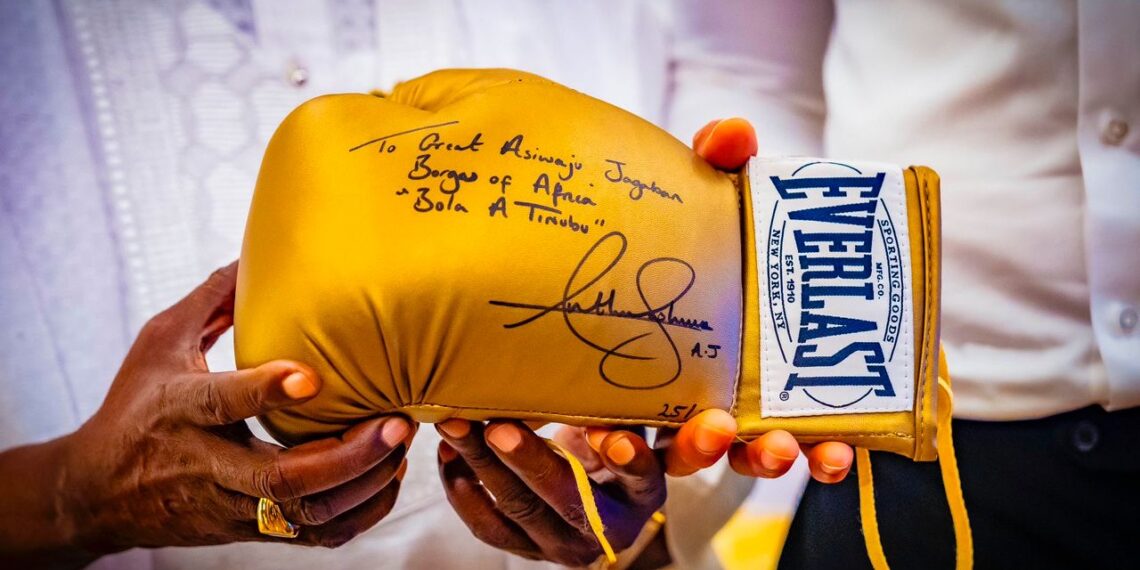 To Great Asiwaju Jagaban
Borgu of Africa
"Bola A Tinubu"
Anthony Joshua
A.J
25/
EVERLAST
SPORTING GOODS
MFG. CO.
EST. 1910
NEW YORK, NY
®